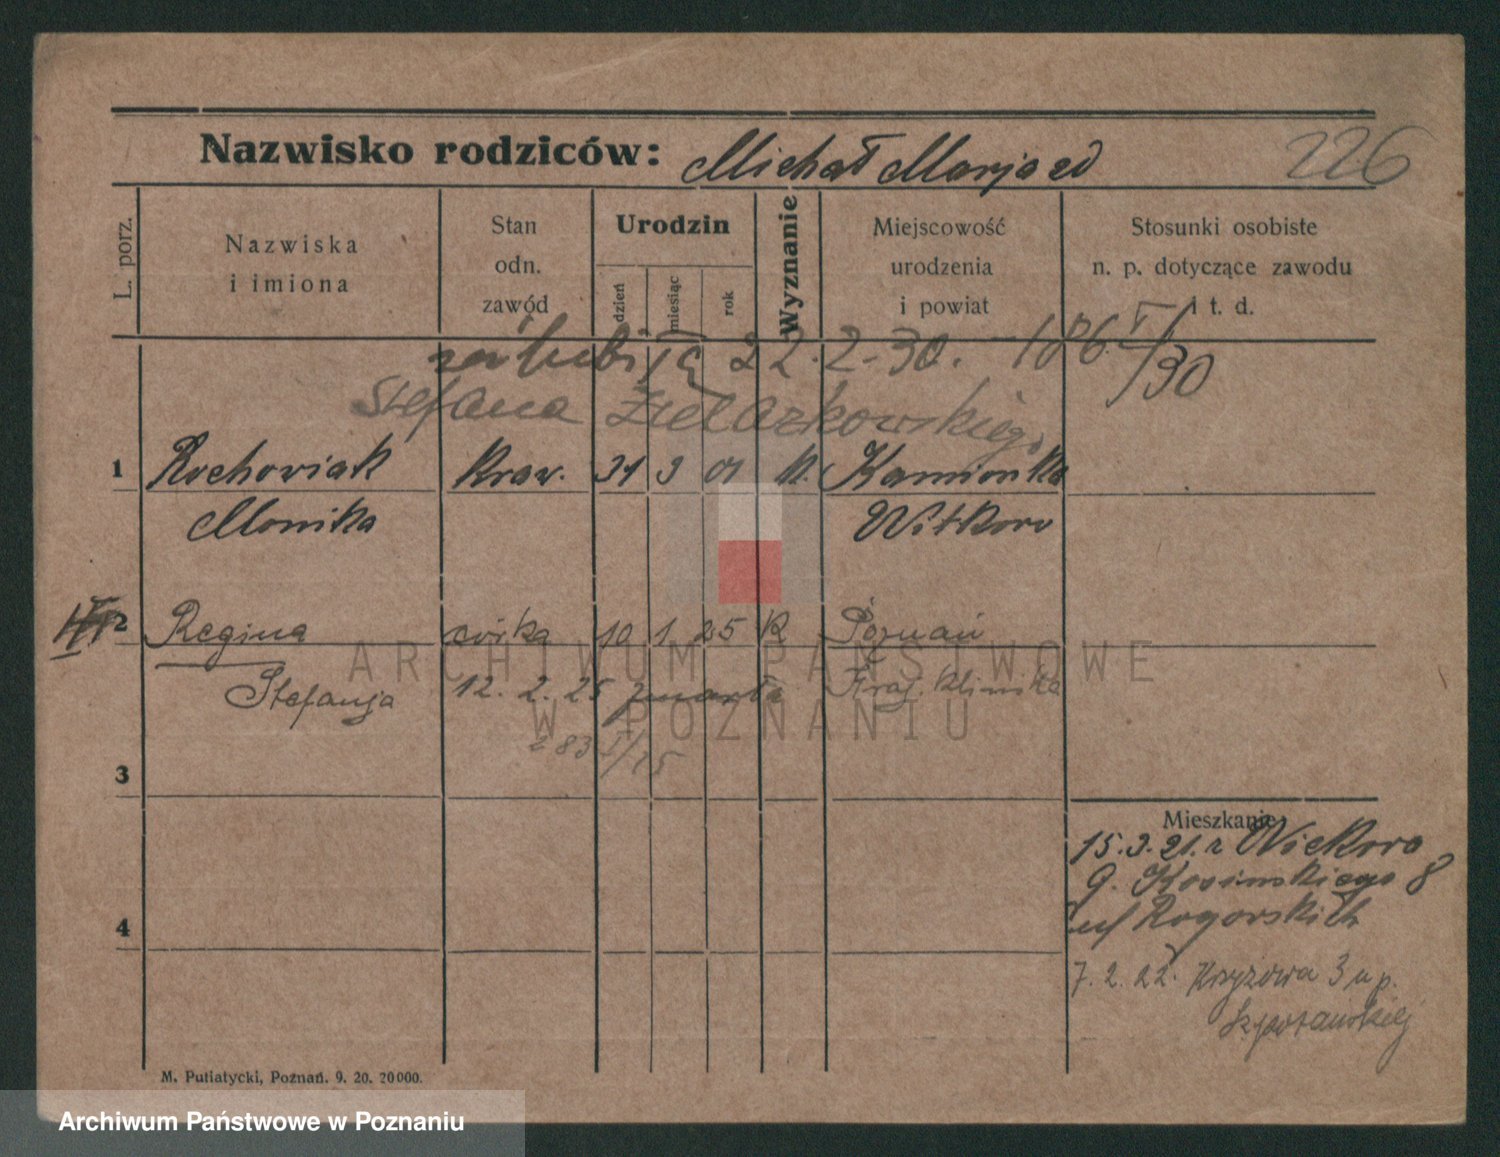 Nazwisko rodziców: Michał Marja zd
226
L. porz.
Nazwiska
i imiona
Stan
odn.
zawód
Urodzin
dzień
miesiąc
rok
Wyznanie
Miejscowość
urodzenia
i powiat
Stosunki osobiste
n. p. dotyczące zawodu
i t. d.
22.2-30. -186 V/30
Stefana Żelazkowskiego
1 Rochowiak Kraw. 31 3 01 K. Kamionka
Monika Witkowo
2 Regina córka 10 1 25 K Poznań
Stefanja 12. 2. 25 zmarła Kraj. Klinika
283 I/25
3
4
Mieszkanie
15.3.21. z Witkowo
G. Kosinskiego 8
u/ Rogorskich
7. 2. 22. Krzyżowa 3 u p.
M. Putiatycki, Poznań. 9. 20. 20000.
ARCHIWUM PAŃSTWOWE
W POZNANIU
Archiwum Państwowe w Poznaniu